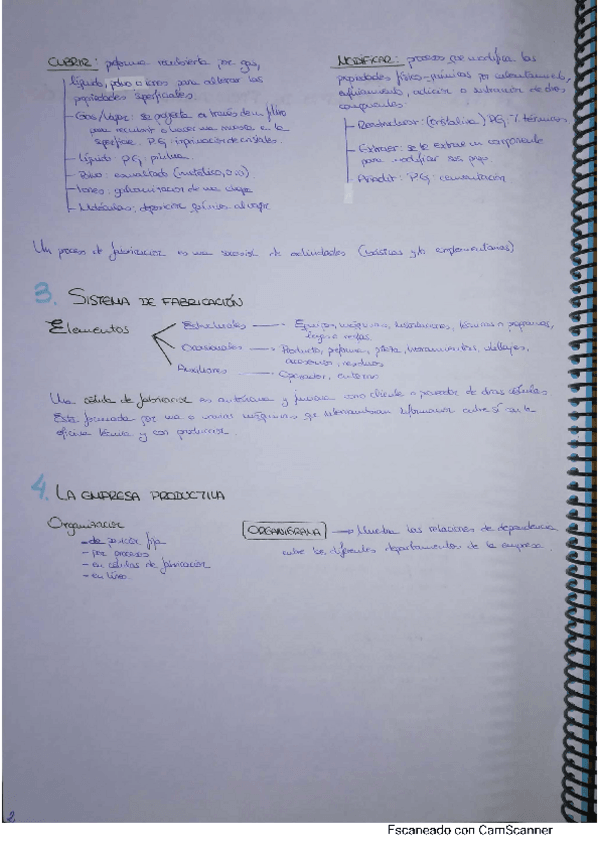 CUBRIR: preforma recubierta por gas,
líquido, polvo o iones para alterar las
propiedades superficiales.
- Gas/vapor: se proyecta a través de un filtro
para recubrir o hacer una muesca en la
superficie. P.G: impresión de cristales.
- Líquido: P.G, pintura.
- Polvo: esmaltado (metálico,
- Iones: galvanización de una chapa
- Moléculas: deposición química al vapor
MODIFICAR: procesos que modifica las
propiedades físico-químicas por calentamiento,
enfriamiento, adición o sustracción de otros
componentes.
- (cristalina) P.G: T. térmicos.
- Extraer: se le extrae un componente
para modificar sus prop.
- Añadir: P.G: cementación
Un proceso de fabricación es una sucesión de actividades (básicas y/o complementarias)
3. SISTEMA DE FABRICACIÓN
Elementos
Estructurales → Equipos, máquinas, instalaciones, técnicas o programas,
Ocasionales → Producto, preforma, pieza, herramientas, utillajes,
accesorios, residuos
Auxiliares → Operador, entorno
Una célula de fabricación es autónoma y funciona como cliente o proveedor de otras células.
Está formada por una o varias máquinas que intercambian información entre sí con la
oficina técnica y con producción.
4. LA EMPRESA PRODUCTIVA
Organización
- de posición fija
- por procesos
- en células de fabricación
- en línea.
ORGANIGRAMA → Muestra las relaciones de dependencia
entre los diferentes departamentos de la empresa.
2
Escaneado con CamScanner